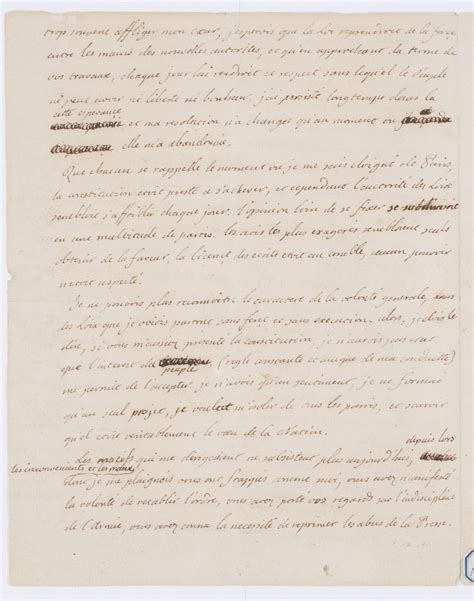 trop souvent affliger mon cœur, j'esperois que la Loi reprendroit de la force
entre les mains des nouvelles autorités, et qu'en approchant du terme de
vos travaux, chaque jour lui rendroit ce respect sans lequel le Peuple
ne peut avoir ni liberté ni bonheur. j'ai persisté longtemps dans la
cette esperance
et ma resolution n'a changée qu'au moment où
elle m'a abandonné.
Que chacun se rappelle le moment où je me suis éloigné de Paris,
la constitution etoit prette a s'achever, et cependant l'autorité des Loix
sembloit s'affoiblir chaque jour. l'opinion loin de se fixer se subdivisoit
en une multitude de partis. les avis les plus exagerés sembloient seuls
obtenir de la faveur, la licence des ecrits etoit au comble, aucun pouvoir
n'etoit respecté.
Je ne pouvois plus reconnoitre le caractere de la volonté generale dans
des Loix que je voiois partout sans force et sans execution. alors, je dois le
dire, si vous m'eussiez presenté la constitution, je n'aurois pas cru
que l'interest du (regle constante et unique de ma conduitte)
peuple
me permit de l'accepter. je n'avois qu'un sentiment, je ne formai
qu'un seul projet, je voulus m'isoler de tous les partis, et savoir
quel etoit veritablement le vœu de la Nation.
depuis lors
des motifs qui me dirigeoient ne subsistent plus aujourd'hui,
les inconvenients et les maux
dont je me plaignois vous ont frappés comme moi, vous avez manifesté
la volonté de retablir l'ordre, vous avez porté vos regards sur l'indiscipline
de l'Armée, vous avez connu la necessité de reprimer les abus de la Presse.